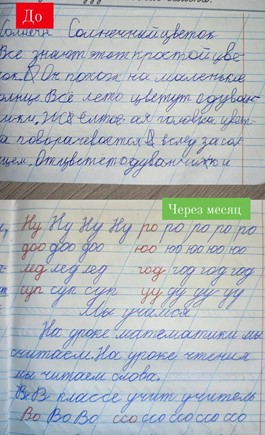 До
Солнечн Солнечный цветок
Все знают этот простой цве-
ток. Он похож на маленькое
солнце. Всё лето цветут одуван-
чики. Жёлтая головка цвет-
ка поворачивается вслед за сол
нцем. Отцветет одуванчик и
Через месяц
Ну Ну Ну Ну ро ро ро ро ро
доо доо доо юо юо юо юо
лед лед лед год год год год
суп суп суп уу уу уу уу
Мы учимся
На уроке математики мы
считаем. На уроке чтения
мы читаем слова.
В В классе учит учитель
Во Во Во ссо ссо ссо ссо ссо